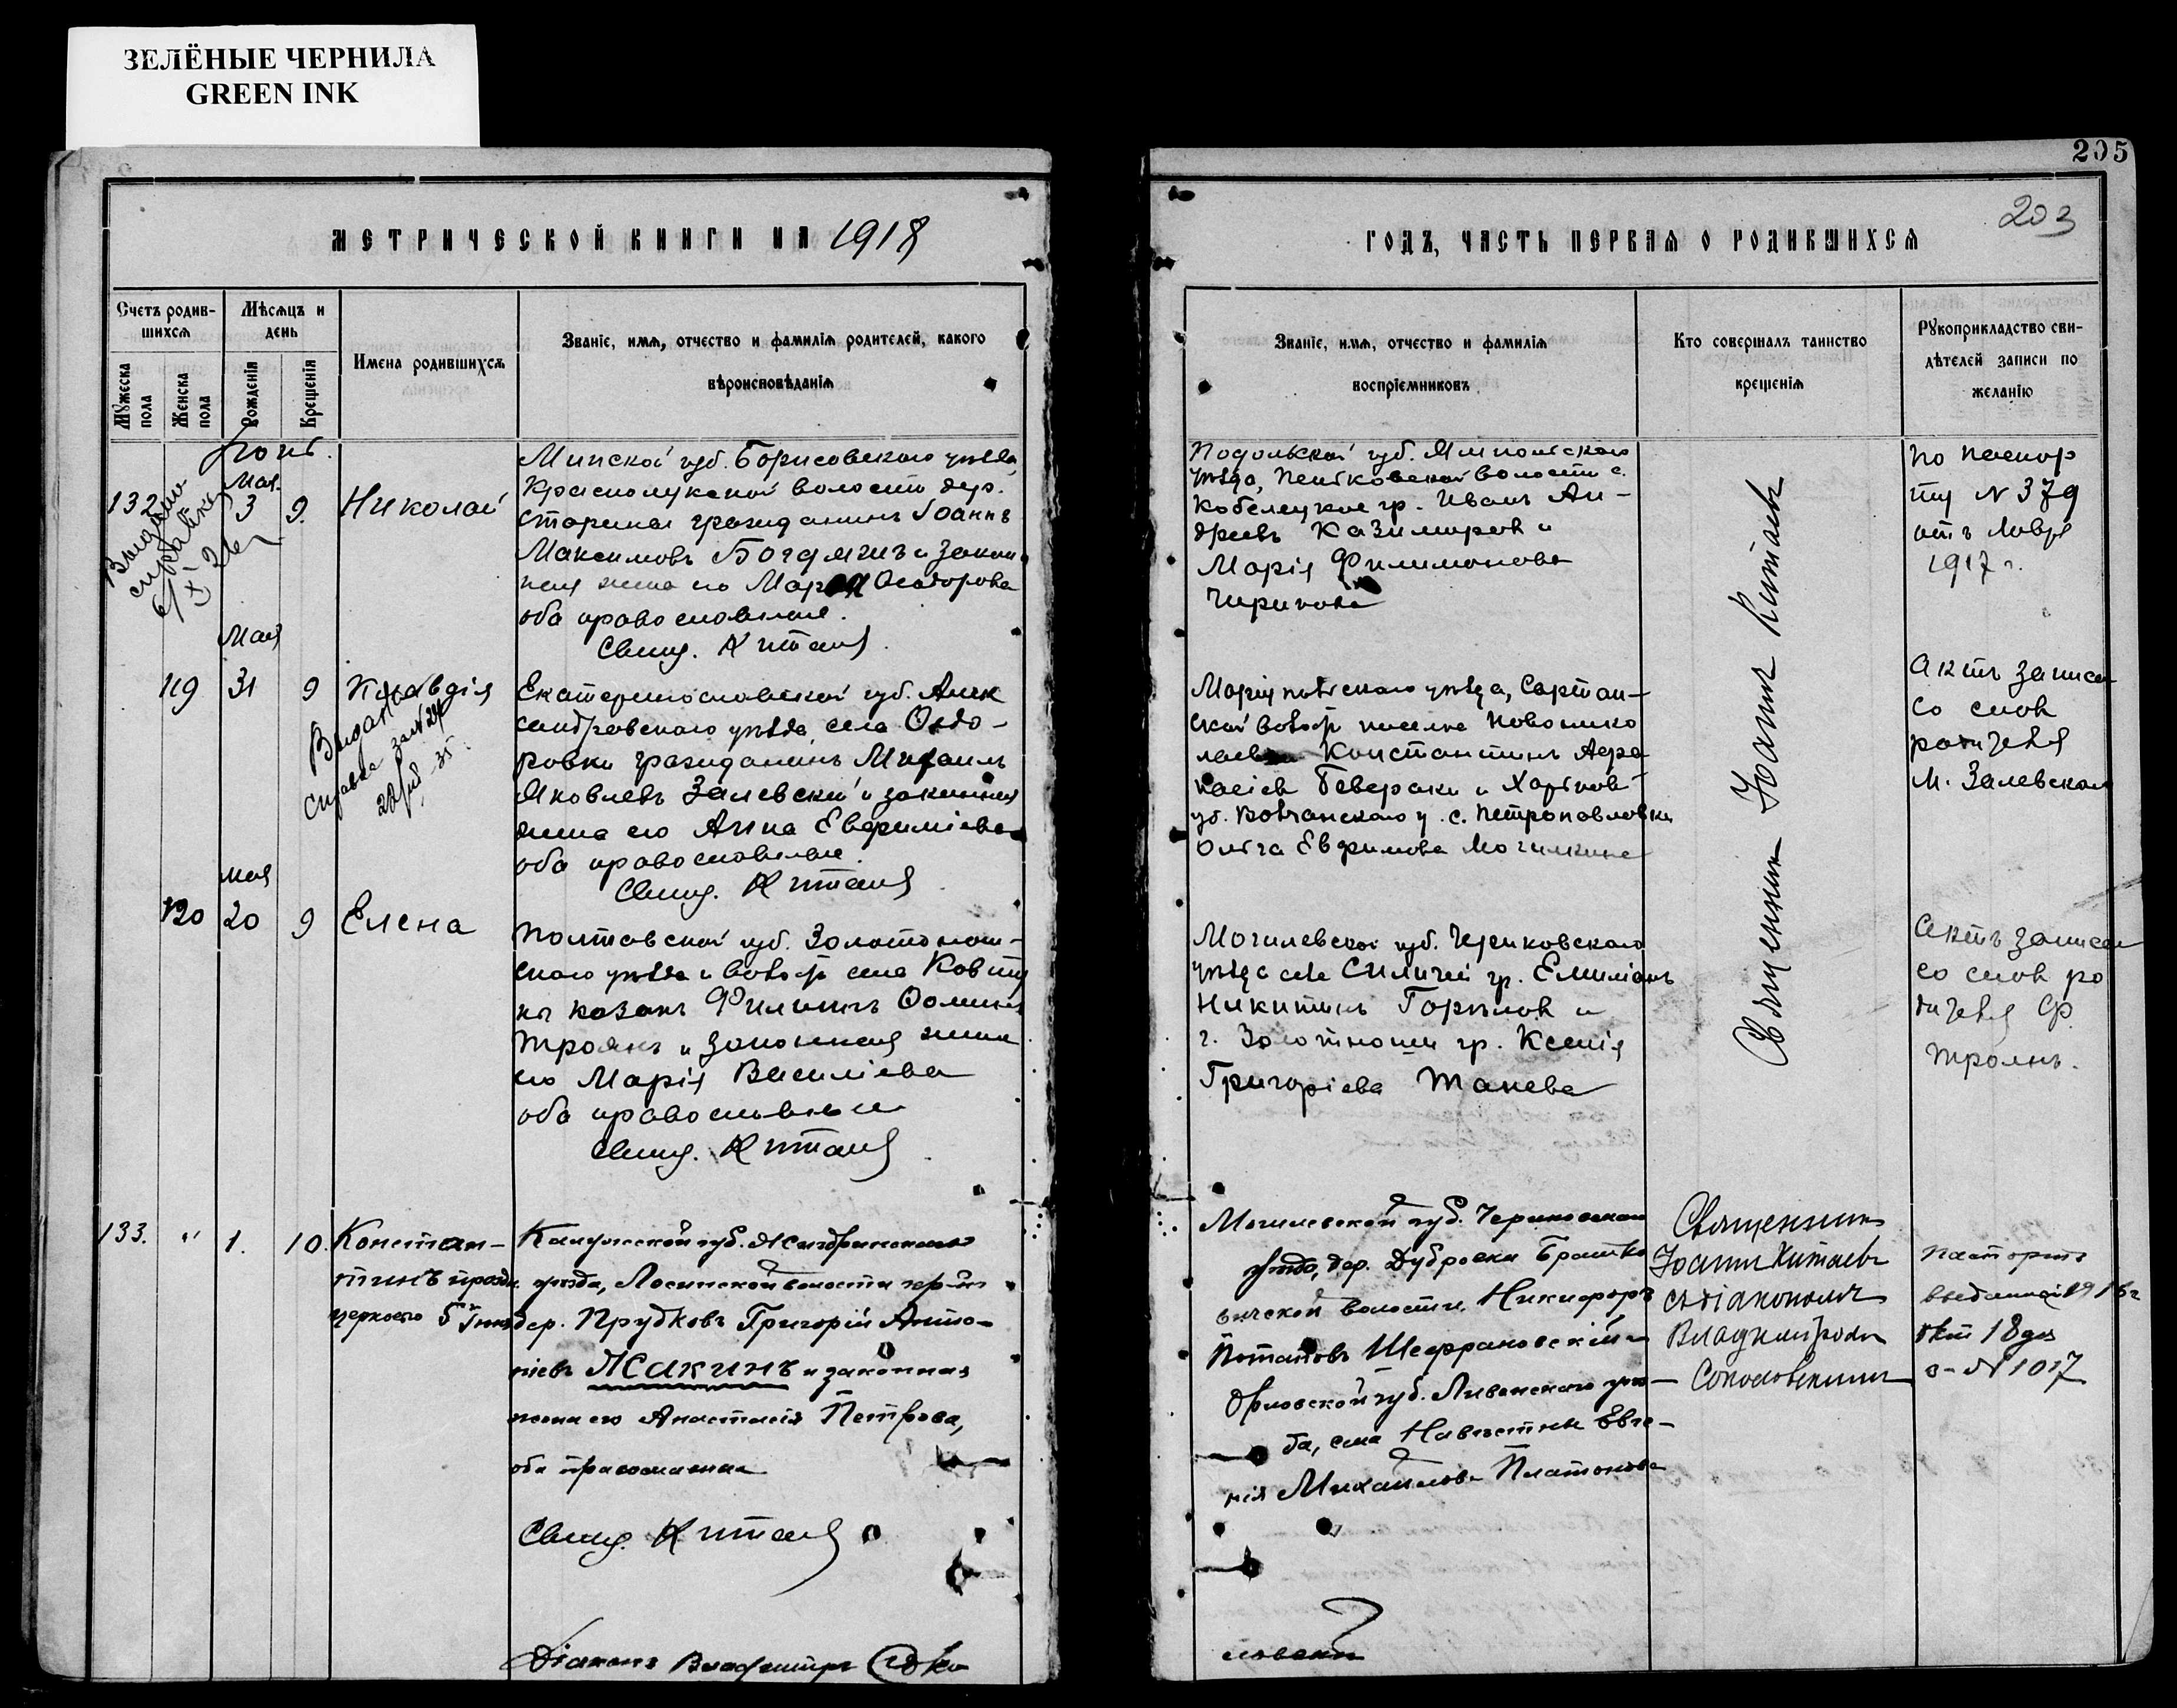 ЗЕЛЁНЫЕ ЧЕРНИЛА
GREEN INK
205
203
МЕТРИЧЕСКОЙ КНИГИ НА 1918
ГОДЪ, ЧАСТЬ ПЕРВАЯ О РОДИВШИХСЯ
Счетъ родив-
шихся
Мѣсяцъ и
день
Мужеска
пола
Женска
пола
Рожденія
Крещенія
Имена родившихся
Званіе, имя, отчество и фамилія родителей, какого
вѣроисповѣданія
Званіе, имя, отчество и фамилія
воспріемниковъ
Кто совершалъ таинство
крещенія
Рукоприкладство сви-
дѣтелей записи по
желанію
132
Выдана
справка
Мая
3
9.
Николай
Минской губ. Борисовскаго уѣзда,
Краснолукской волости дер.
гражданинъ Іоаннъ
Максимовъ Богдан и закон
ная жена его Марія Феодорова
оба православные.
Свящ. Китаев
Подольской губ. Ямпольскаго
уѣзда, Пеньковской волости с.
Кобелецкое гр. Иванъ Ан-
дреевъ Казимиров и
Марія Филимонова
Чирикова
По паспор
ту N 379
отъ
1917 г.
Мая
119
31
9
Клавдія
Выдана
справка
Екатеринославской губ. Алек
сандровскаго уѣзда, села Ѳедо-
ровки гражданинъ Михаилъ
Яковлевъ Залевскій и законная
жена его Анна Евфиміева
оба православные.
Свящ. Китаев
Маріупольскаго уѣзда, Сартан-
ской волости поселка Новонико
лаевка Константинъ
и Харьков
губ. Волчанскаго у. с. Петропавловки
Ольга Евфимова Могилкина
Актъ записан
со слов
родителя
М. Залевскаго
Мая
120
20
9
Елена
Полтавской губ. Золотонош-
скаго уѣзда и волости села
казакъ Филиппъ Ѳомин
Троянъ и законная жена
его Марія Василіева
оба православные
Свящ. Китаев
Могилевской губ. Чериковскаго
уѣзда села Силичи гр. Емиліанъ
Никитинъ Горѣлов и
г. Золотноши гр. Ксенія
Григоріева Танева
Актъ записан
со слов ро
дителя Ф.
Троянъ.
Священник Іоаннъ Китаевъ
133.
"
1.
10.
Констан-
тинъ празд.
церковью 5 Іюня
Калужской губ. Жиздринскаго
уѣзда, Лосинской волости
дер. Прудковъ Григорій Анто-
ніевъ Жакинъ и законная
жена его Анастасія Петрова,
оба православные
Свящ. Китаев
Могилевской губ. Чериковскаго
уѣзда, дер. Дубровки Брашко
вичской волости Никифоръ
Потаповъ Шеффрановскій и
Орловской губ. Ливенскаго уѣз-
да, села Навѣстнеи Евге-
нія Михайлова Платонова
Священникъ
Іоаннъ Китаевъ
съ діакономъ
Владиміромъ
Соколовскимъ
паспортъ
выданный 1916 г
Окт 18 дня
за N 1017
Діаконъ Владиміръ Соко
ловскій